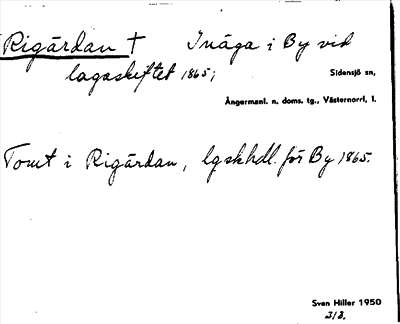 Rigärdan † Inäga i By vid
lagaskiftet 1865;
Sidensjö sn,
Ångermanl. n. doms. tg., Västernorrl, l.
Tomt i Rigärdan, lgskhdl. för By 1865.
Sven Hiller 1950
313.